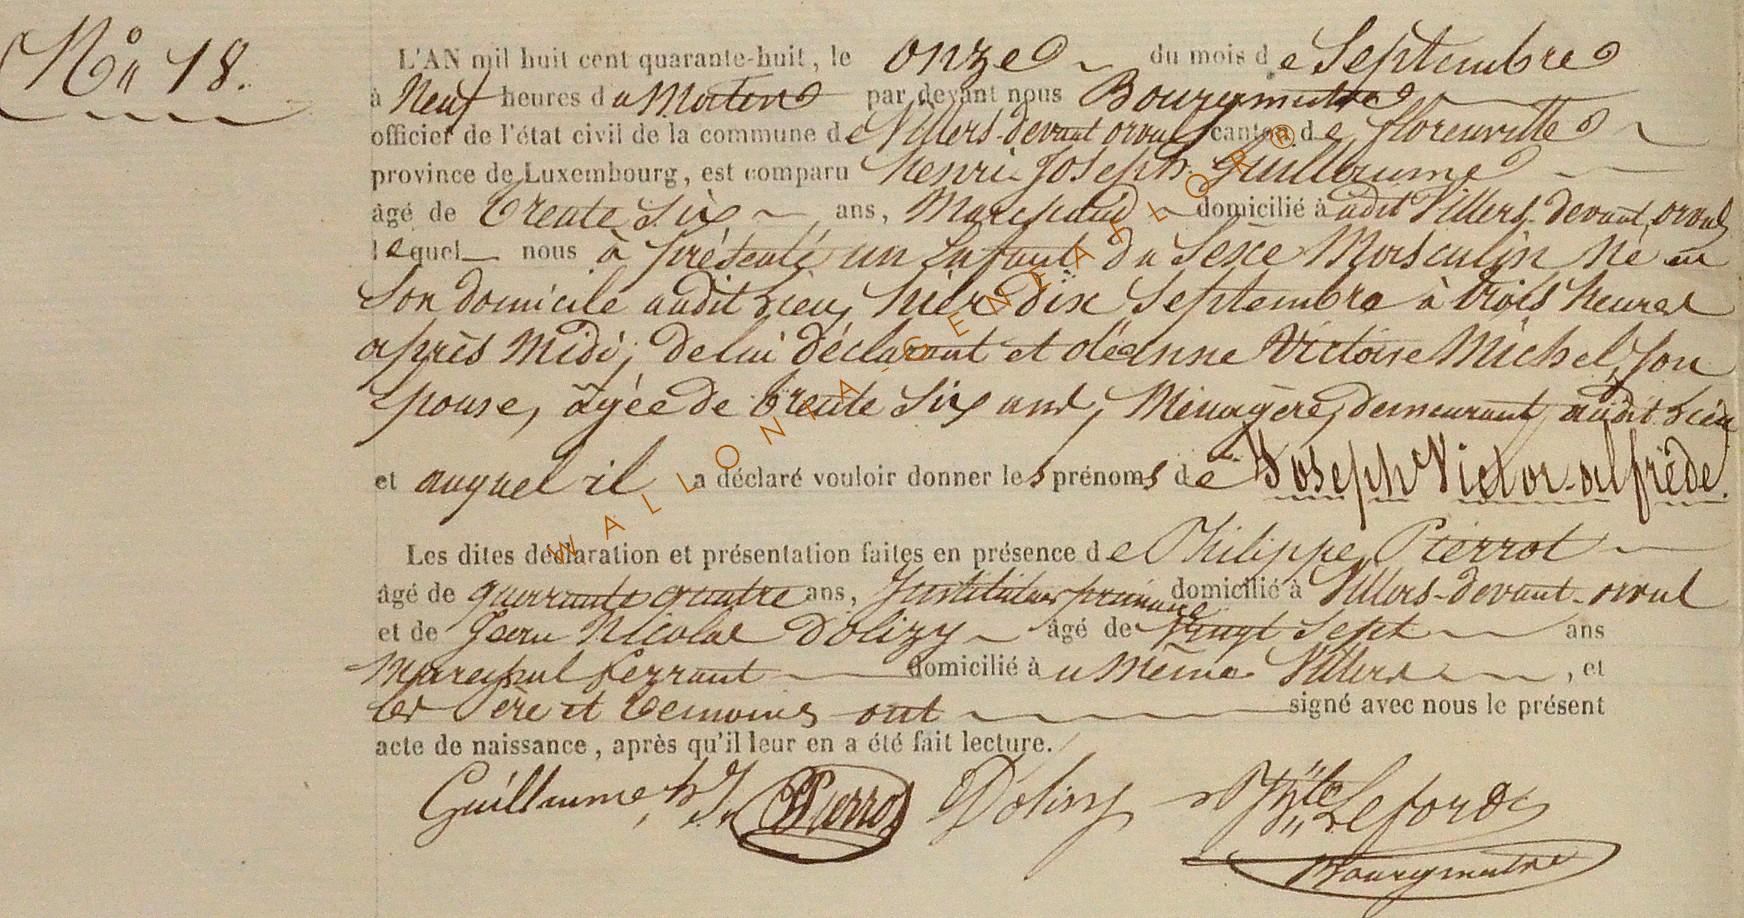 No 18.
L'AN mil huit cent quarante-huit, le onze du mois de Septembre
à Neuf heures du Matin par devant nous Bourgmestre
officier de l'état civil de la commune de Villers-devant orval canton de florenville
province de Luxembourg, est comparu henri Joseph Guillaume
âgé de trente Six ans, Marechal domicilié à audit Villers-devant, orval
lequel nous à présenté un Enfant du Sexe Masculin Né en
Son domicile audit Lieu, hier dix Septembre à trois heures
après Midi, de lui déclarant et de Anne Victoire Michel, Son
Epouse, âgée de trente Six ans, Menagère, demeurant, audit Lieu
et auquel il a déclaré vouloir donner les prénoms de Joseph Victor-alfrède.
Les dites déclaration et présentation faites en présence de Philippe Pierrot
âgé de quarrante quatre ans, Instituteur primaire domicilié à Villers-devant-orval
et de Jean Nicolas Dolizy âgé de Vingt Sept ans
Marechal ferrant domicilié à u Même Villers, et
les Père et temoins ont signé avec nous le présent
acte de naissance, après qu'il leur en a été fait lecture.
Guillaume, h J. Pierrot Dolizy Lefort
Bourgmestre
WALLONIA-GENEAFLOR®